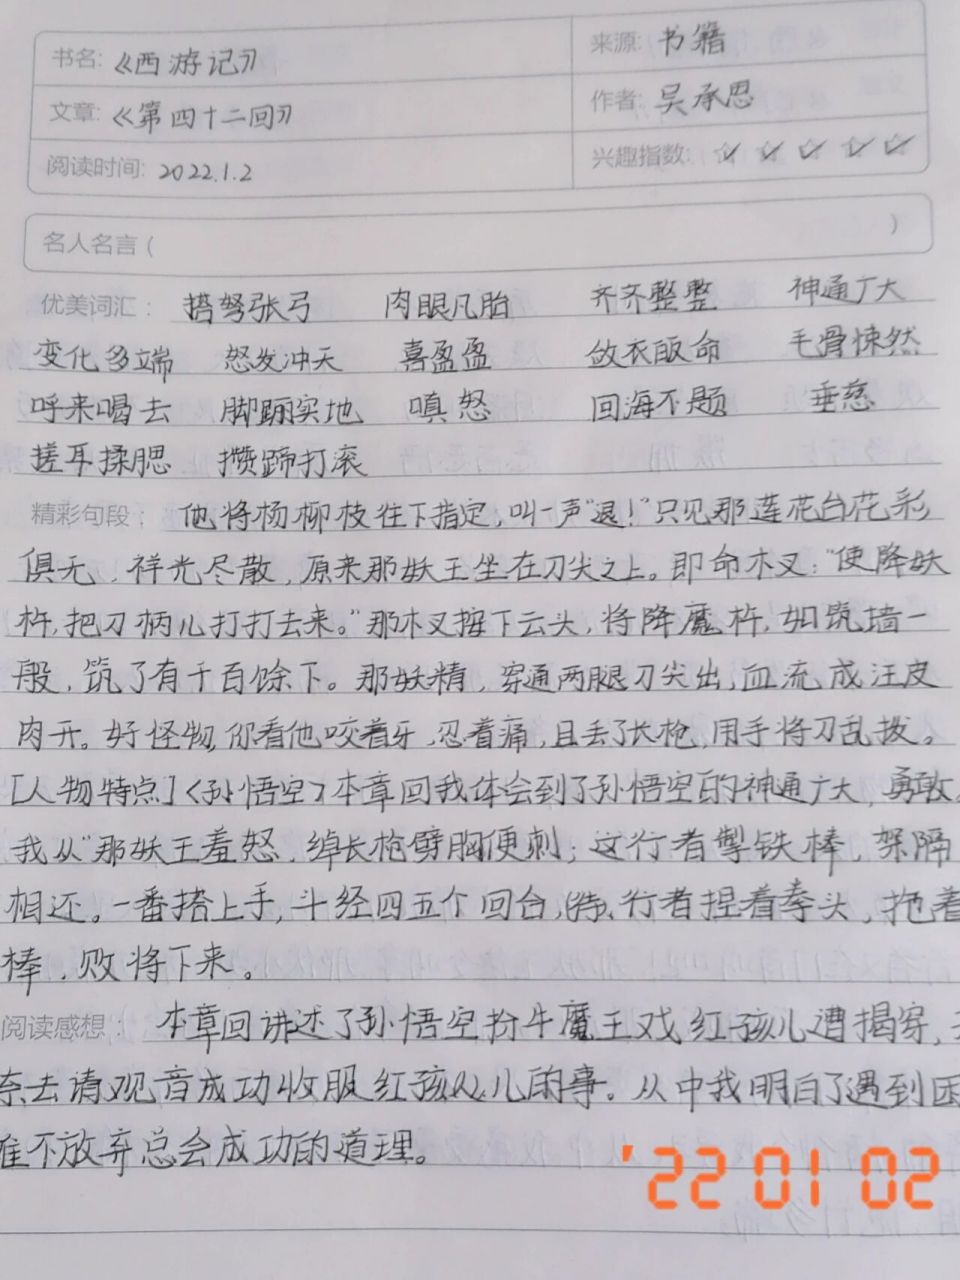 书名: 《西游记》 来源: 书籍
文章: 《第四十二回》 作者: 吴承恩
阅读时间: 2022.1.2 兴趣指数: ☆ ☆ ☆ ☆ ☆
名人名言 ( )
优美词汇: 搭弩张弓 肉眼凡胎 齐齐整整 神通广大
变化多端 怒发冲天 喜盈盈 敛衣皈命 毛骨悚然
呼来喝去 脚踏实地 嗔怒 回海不题 垂慈
搓耳揉腮 攒蹄打滚
精彩句段: 他将杨柳枝往下指定,叫一声“退!”只见那莲花台花彩
俱无,祥光尽散,原来那妖王坐在刀尖之上。即命木叉:“使降妖
杵,把刀柄儿打打去来。”那木叉按下云头,将降魔杵,如筑墙一
般,筑了有千百馀下。那妖精,穿通两腿刀尖出,血流成汪皮
肉开。好怪物,你看他咬着牙,忍着痛,且丢了长枪,用手将刀乱拔。
[人物特点]〈孙悟空〉本章回我体会到了孙悟空的神通广大,勇敢。
我从“那妖王羞怒,绰长枪劈胸便刺;这行者掣铁棒,架隔
相还。一番搭上手,斗经四五个回合,行者捏着拳头,拖着
棒,败将下来。
阅读感想: 本章回讲述了孙悟空扮牛魔王戏红孩儿遭揭穿,
奈去请观音成功收服红孩儿的事。从中我明白了遇到困
难不放弃总会成功的道理。
'22 01 02